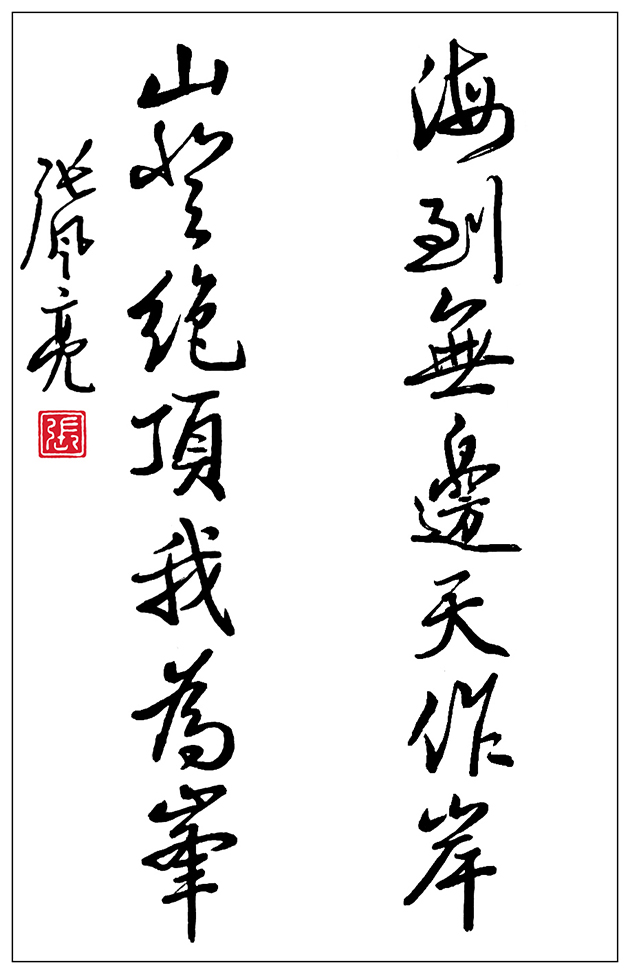 海到無邊天作岸
山登絶頂我為峯
張風亮
張